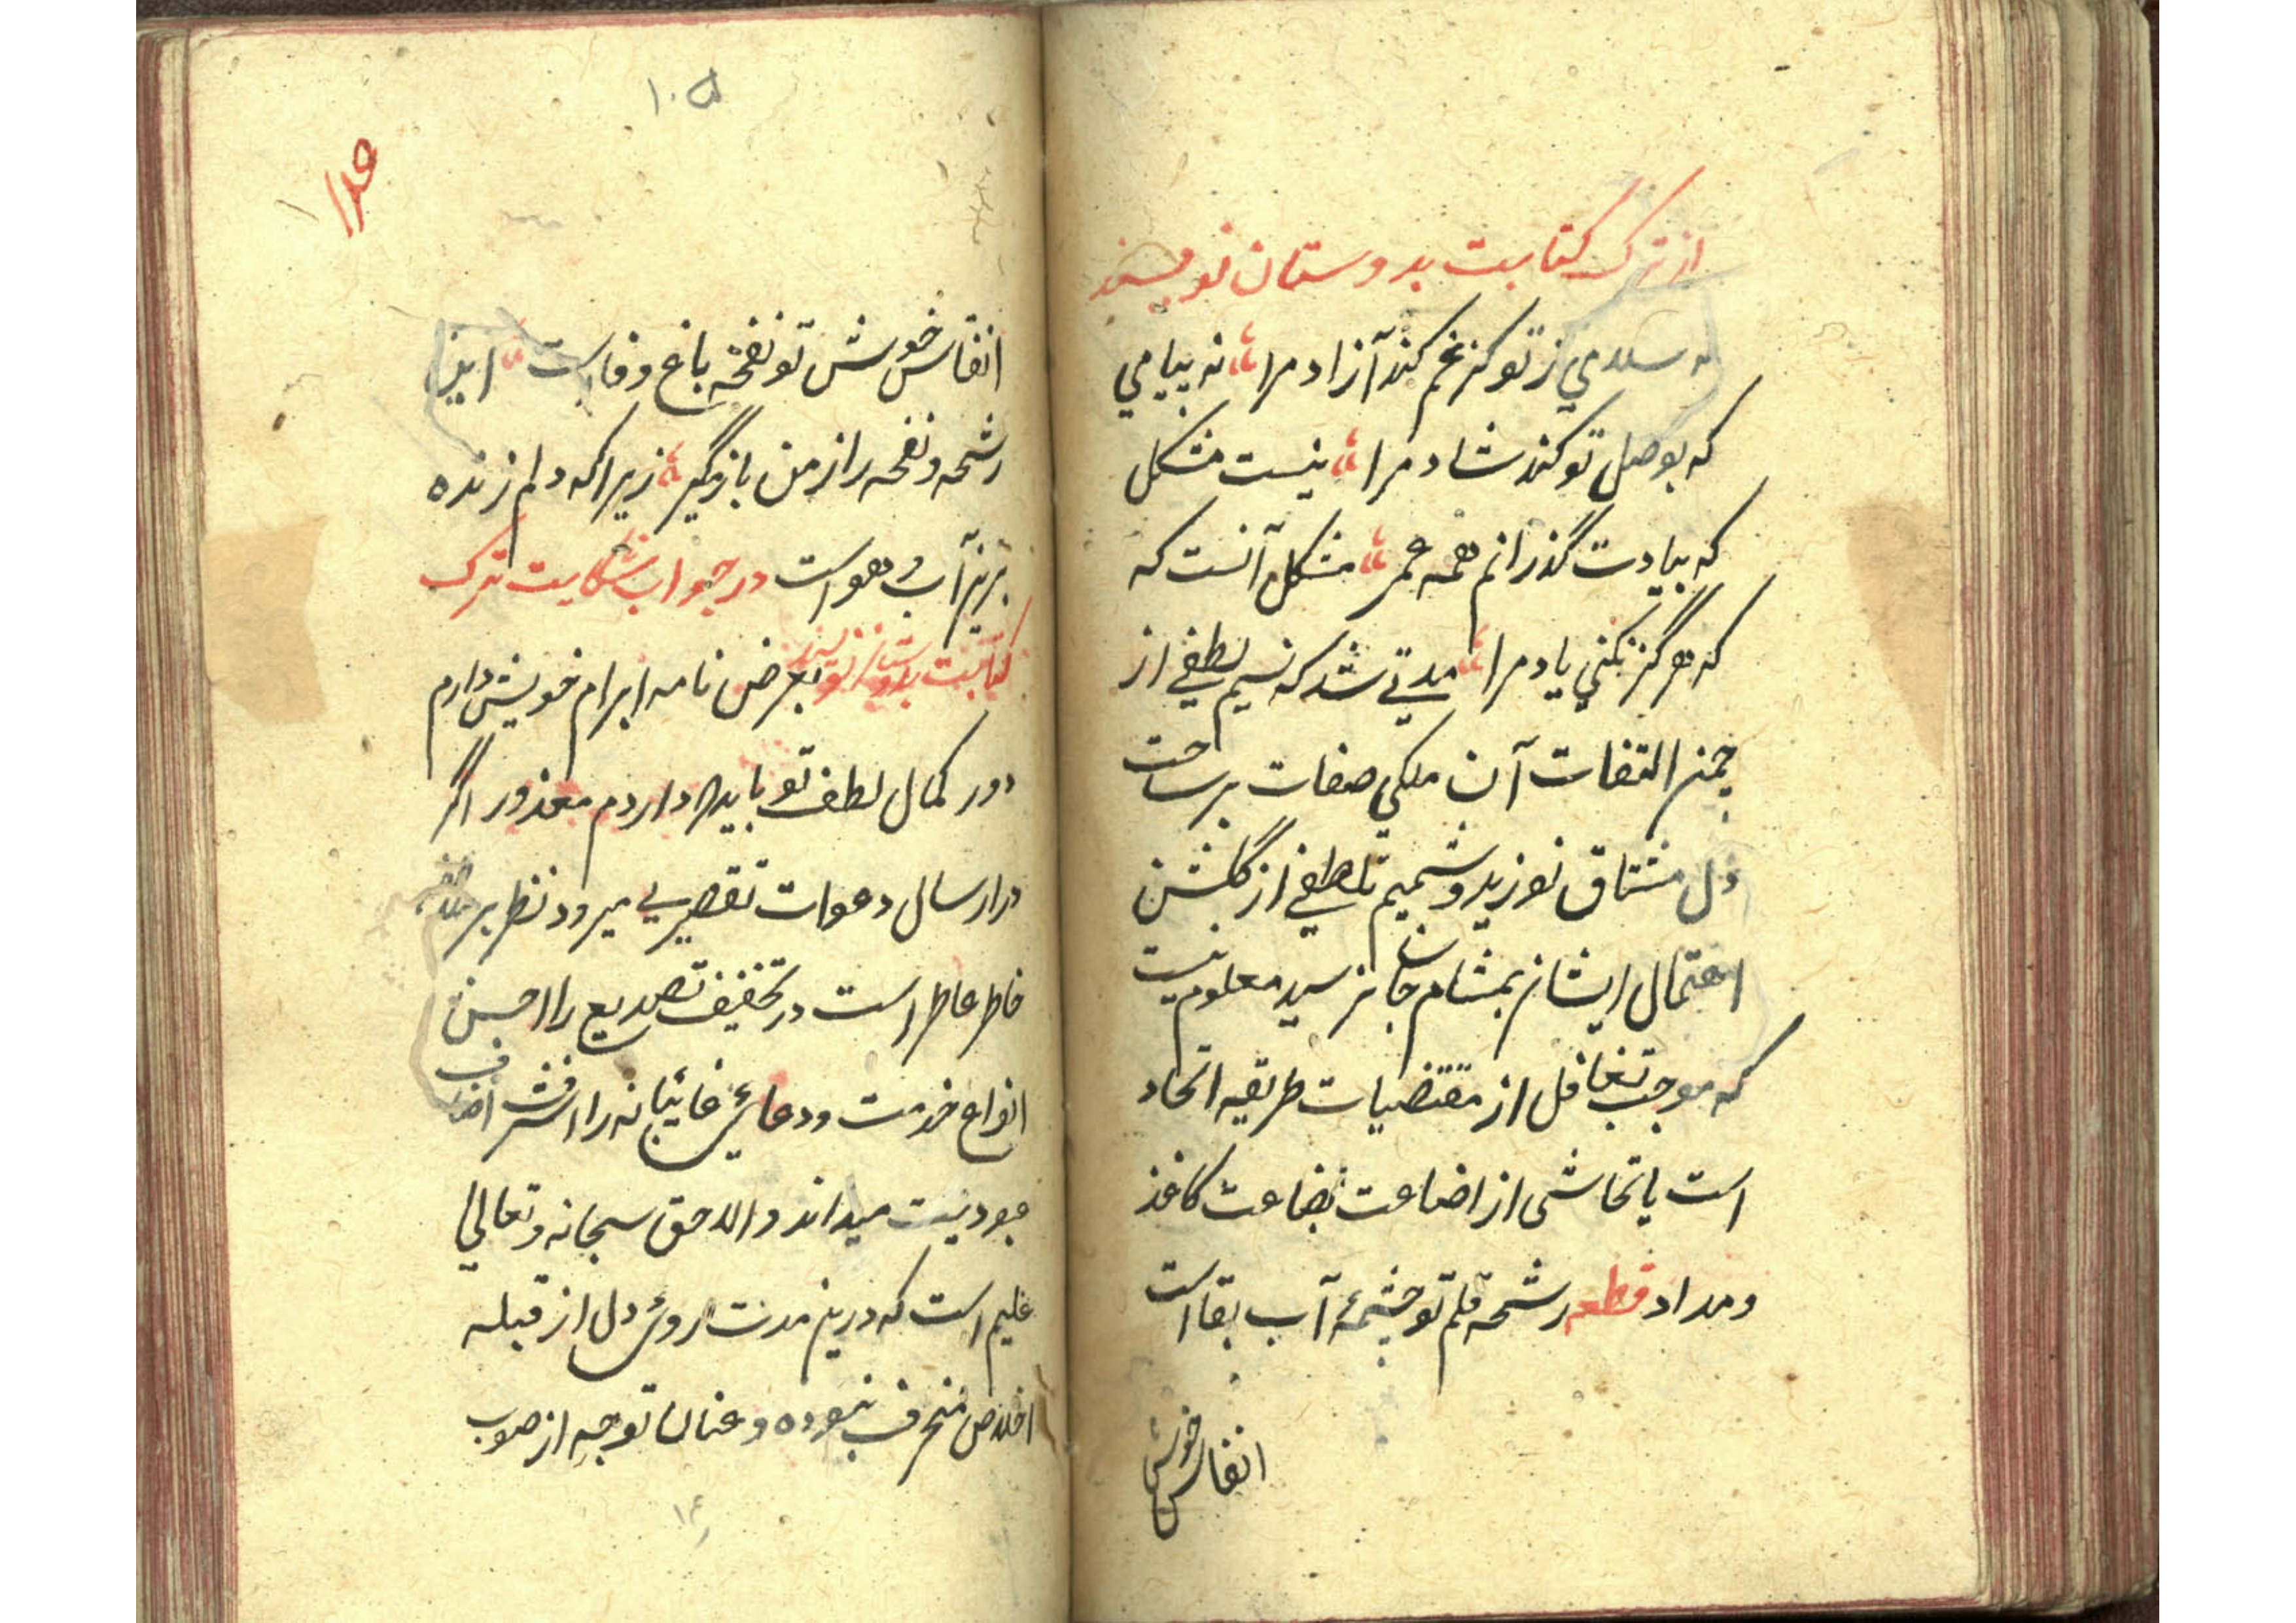 از ترک کتابت بدوستان نویسند
نه سلامي ز تو کز غم کند آزاد مرا نه پيامي
که بوصل تو کند شاد مرا نیست مشکل
که بیادت گذرانم همه عمر مشکل آنست که
که هرگز نکني یاد مرا مدتي شد که نسیم لطفي از
چمن التفات آن ملکي صفات بر ساحت
دل مشتاق نوزید و شمیم تلطفي از گلشن
اهتمال ایشان بمشام جان نرسید معلوم نیست
که موجب تغافل از مقتضیات طریقه اتحاد
است یا تحاشی از اضاعت بضاعت کاغذ
و مداد قطعه رشحه قلم تو چشمهٔ آب بقا است
انفاس خوش
۱۰۵
انفاس خوش تو نفخه باغ وفا است این
رشحه و نفحه را از من باز مگیر زیرا که دلم زنده
برین آب و هواست در جواب شکایت ترک
کتابت بدوستان نویسند بعرض نامه ابرام خویش دارم
دور کمال لطف تو باید که داردم معذور اگر
در ارسال دعوات تقصیري میرود نظر بر
خاطر عاطر است در تخفیف تصدیع را احسن
انواع خدمت و دعائی غائبانه را اشرف اصناف
عبودیت میداند والا حق سبحانه و تعالی
علیم است که درین مدت روئ دل از قبله
اخلاص منحرف نبوده و عنان توجه از صوب